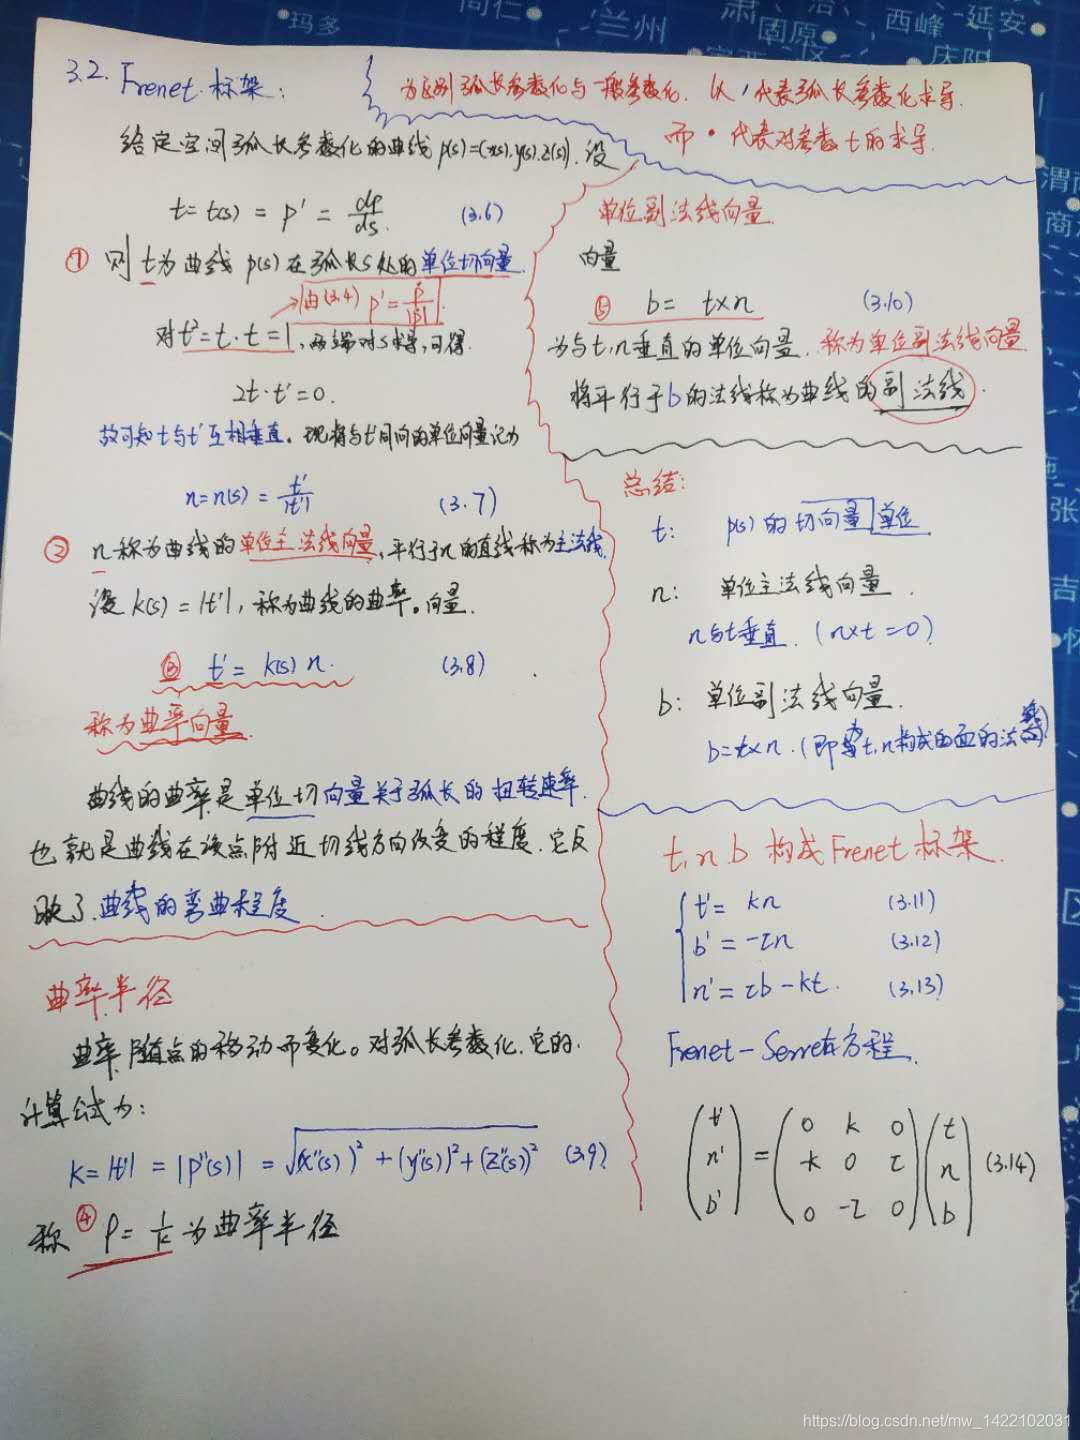 3.2. Frenet 标架:
为区别弧长参数化与一般参数化. 以 ' 代表弧长参数化求导.
而 • 代表对参数 t 的求导.
给定空间弧长参数化的曲线 p(s)=(x(s).y(s).z(s)). 设
t = t(s) = p' = dp/ds. (3.6)
① 则 t 为曲线 p(s) 在弧长 s 处的单位切向量.
由(3.4) p' = ṗ/|ṗ|
对 t² = t · t = 1, 两端对 s 求导, 可得.
2t · t' = 0.
故可知 t 与 t' 互相垂直。现将与 t' 同向的单位向量记为
n = n(s) = t'/|t'| (3.7)
② n 称为曲线的单位主法线向量, 平行于 n 的直线称为主法线.
设 k(s) = |t'|, 称为曲线的曲率。向量.
③ t' = k(s) n. (3.8)
称为曲率向量.
曲线的曲率是单位切向量关于弧长的扭转速率.
也就是曲线在该点附近切线方向改变的程度. 它反
映了曲线的弯曲程度.
曲率半径
曲率随点的移动而变化。对弧长参数化. 它的.
计算公式为:
k = |t'| = |p''(s)| = √(x''(s))² + (y''(s))² + (z''(s))² (3.9)
称 ④ ρ = 1/k 为曲率半径
单位副法线向量.
向量
⑤ b = t×n (3.10)
为与 t, n 垂直的单位向量. 称为单位副法线向量.
将平行于 b 的法线称为曲线的副法线.
总结:
t: p(s) 的切向量 单位
n: 单位主法线向量.
n 与 t 垂直. (n×t=0)
b: 单位副法线向量.
b = t×n. (即 t, n 构成的面的法线)
t, n. b 构成 Frenet 标架.
t' = kn (3.11)
b' = -τn (3.12)
n' = τb - kt. (3.13)
Frenet-Serret方程.
t' 0 k 0 t
n' = -k 0 τ n (3.14)
b' 0 -τ 0 b
https://blog.csdn.net/mw_1422102031
同仁
玛多
兰州
肃
固原
西峰
延安
庆阳
渭南
商
张
吉
怀